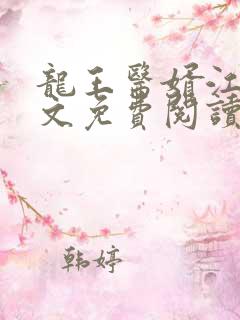 龍王醫婿江
文免費閱讀
韩婷